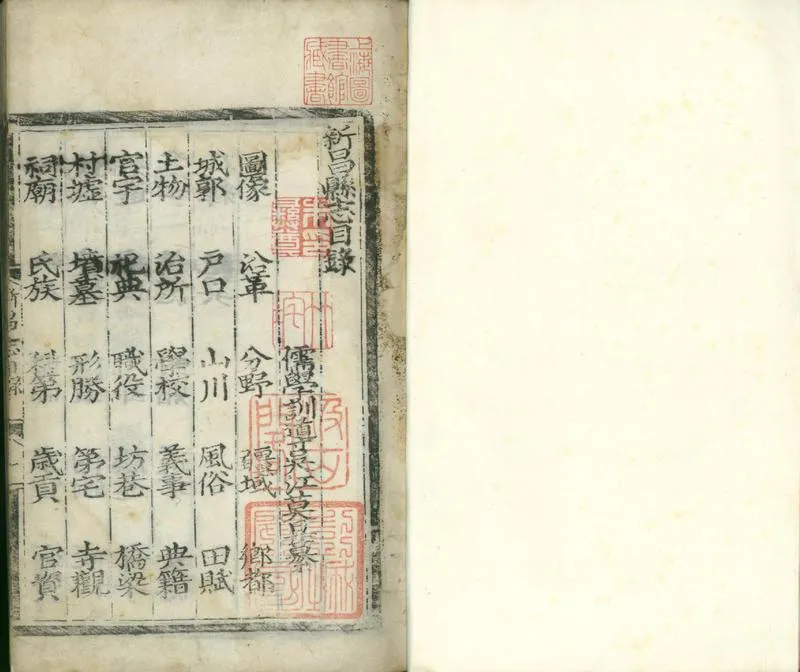 上海圖書館藏書
新昌縣志目錄
儒學訓導吳江莫旦纂
圖像 沿革 分野 疆域 鄉都
城郭 戶口 山川 風俗 田賦
土物 治所 學校 義事 典籍
官宇 祀典 職役 坊巷 橋梁
村墟 墳墓 形勝 第宅 寺觀
祠廟 氏族 科第 歲貢 官資
新昌志目錄